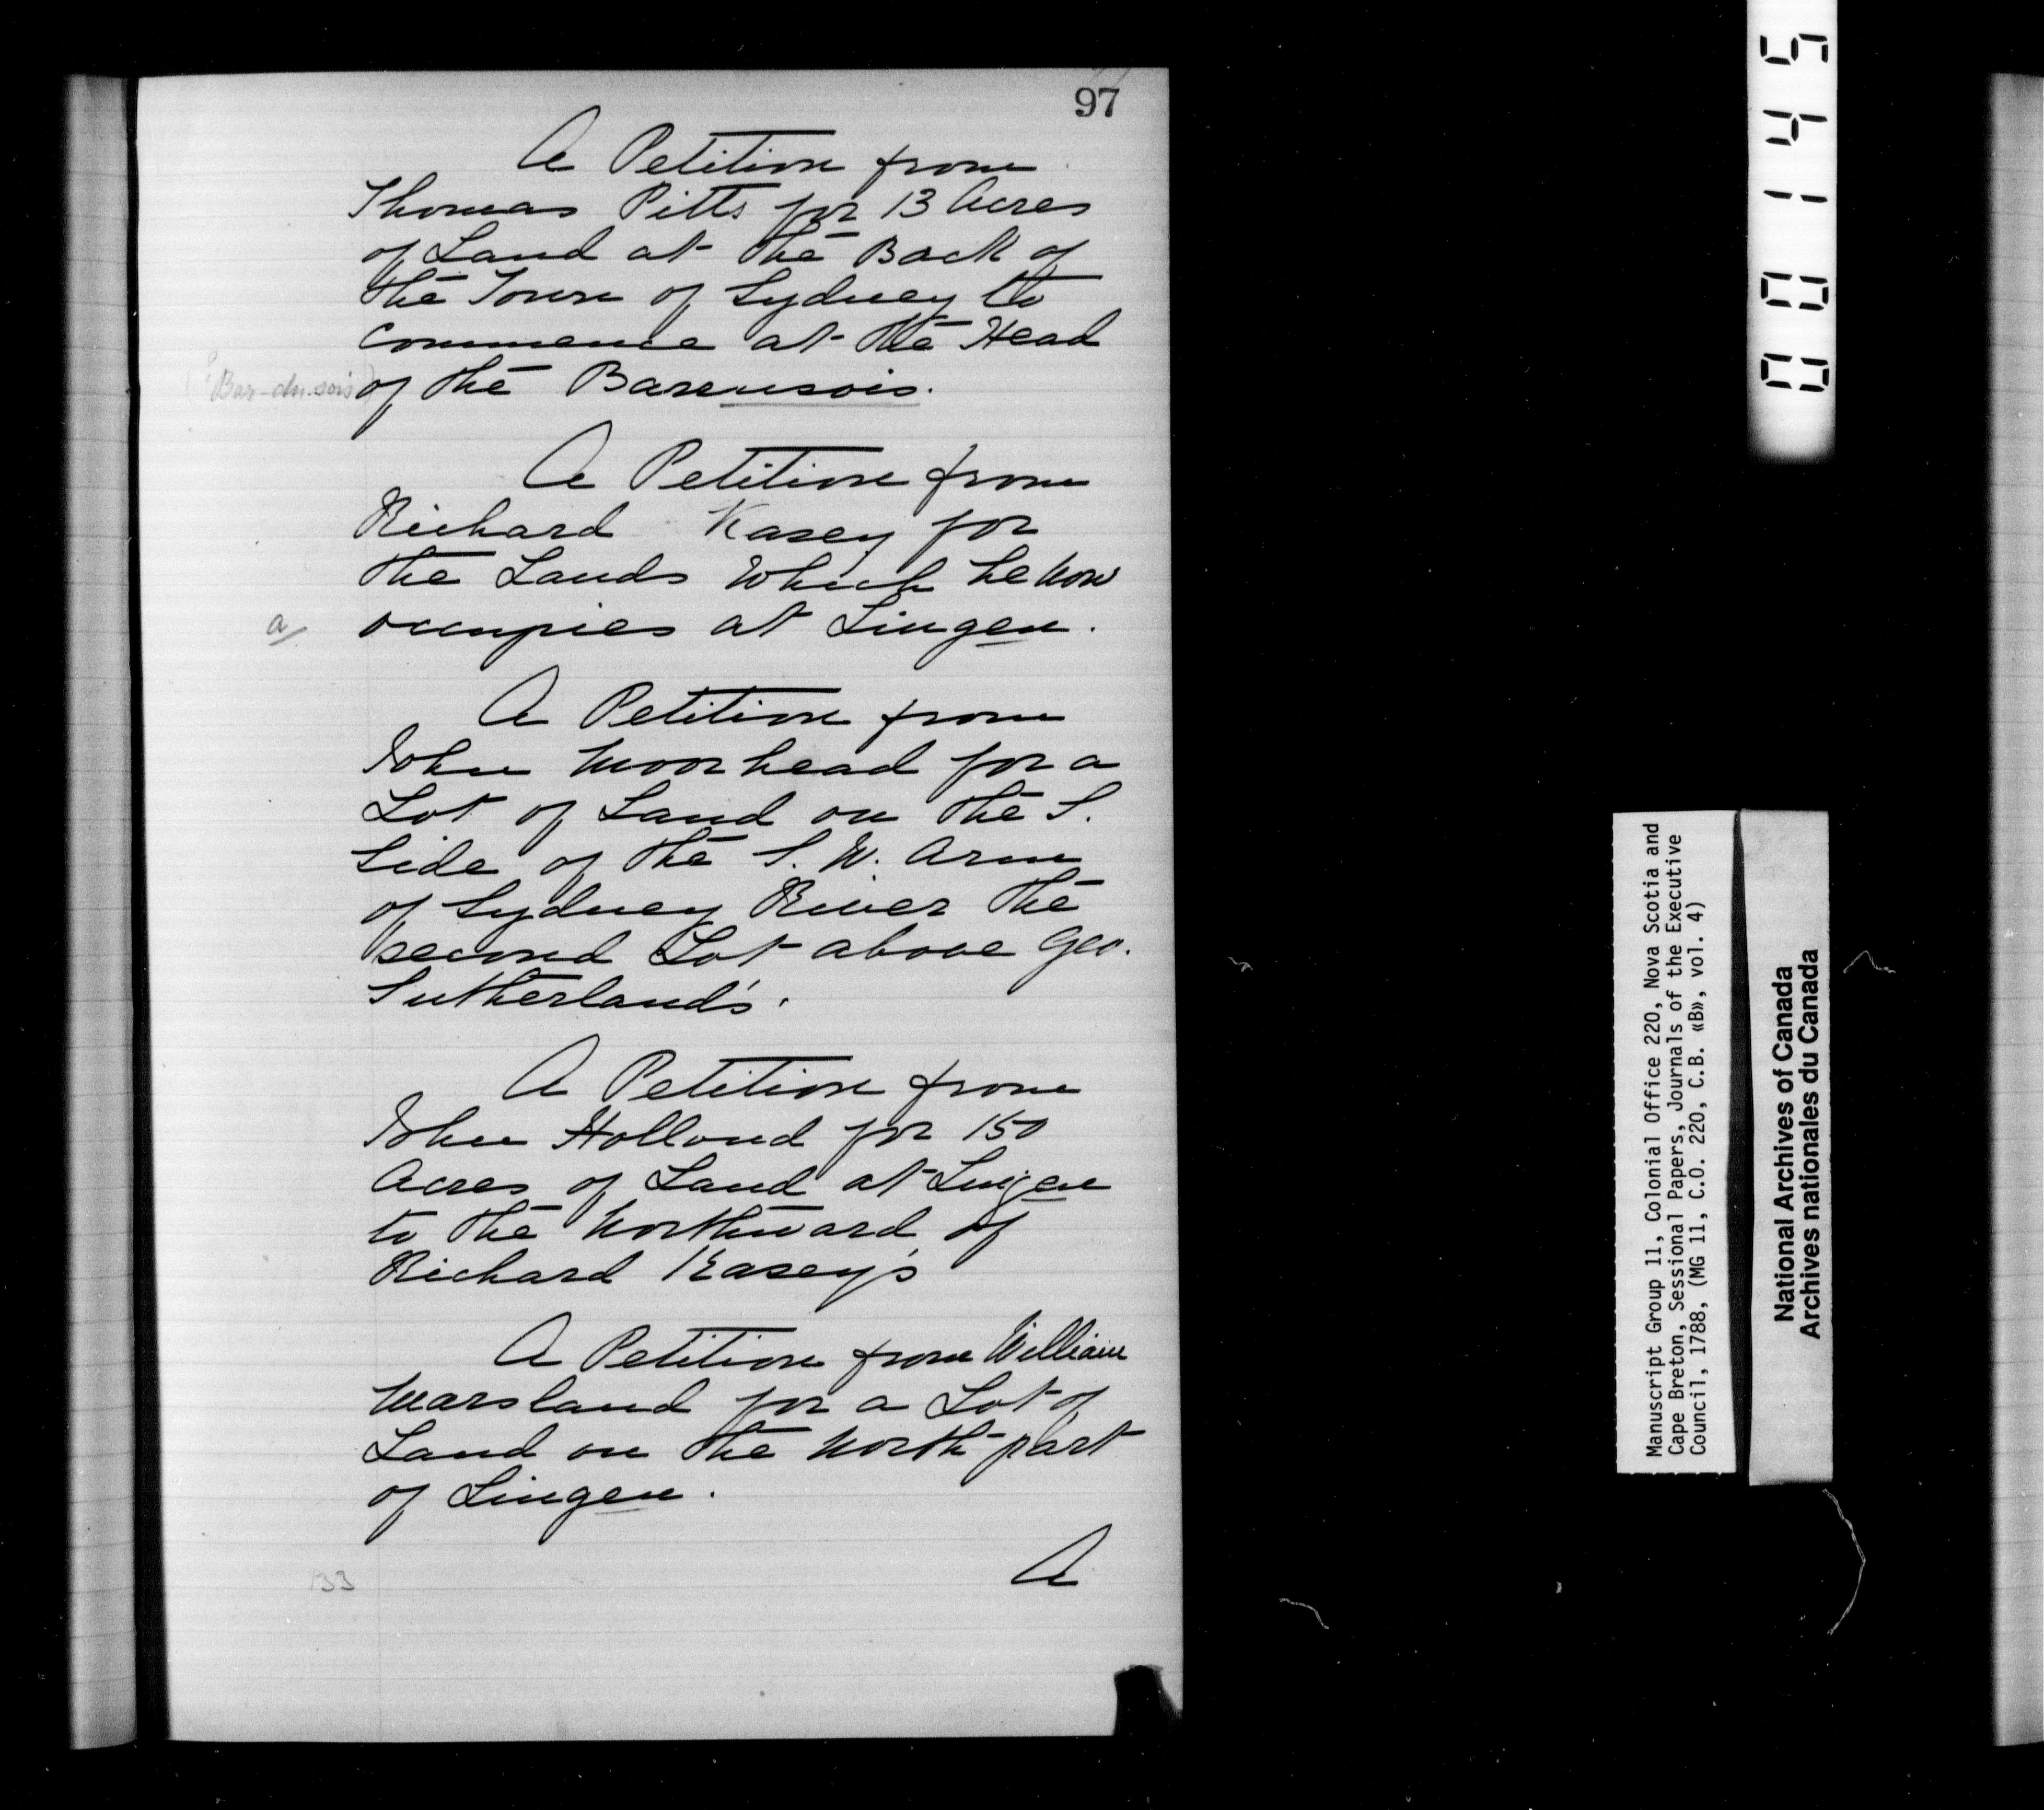 97
A Petition from
Thomas Pitts for 13 Acres
of Land at the Back of
the Town of Sydney to
commence at the Head
(? Bar-du-sois) of the Barrusois.
A Petition from
Richard Kasey for
the Lands Which he now
a/ occupies at Lingen.
A Petition from
John Moorhead for a
Lot of Land on the S.
Side of the S. W. Arm
of Sydney River the
second Lot above Geo.
Sutherland's.
A Petition from
John Holland for 150
Acres of Land at Lingen
to the Northward of
Richard Kasey's
A Petition from William
Marsland for a Lot of
Land on the North part
of Lingen.
A
133
00145
Manuscript Group 11, Colonial Office 220, Nova Scotia and
Cape Breton, Sessional Papers, Journals of the Executive
Council, 1788, (MG 11, C.O. 220, C.B. «B», vol. 4)
National Archives of Canada
Archives nationales du Canada